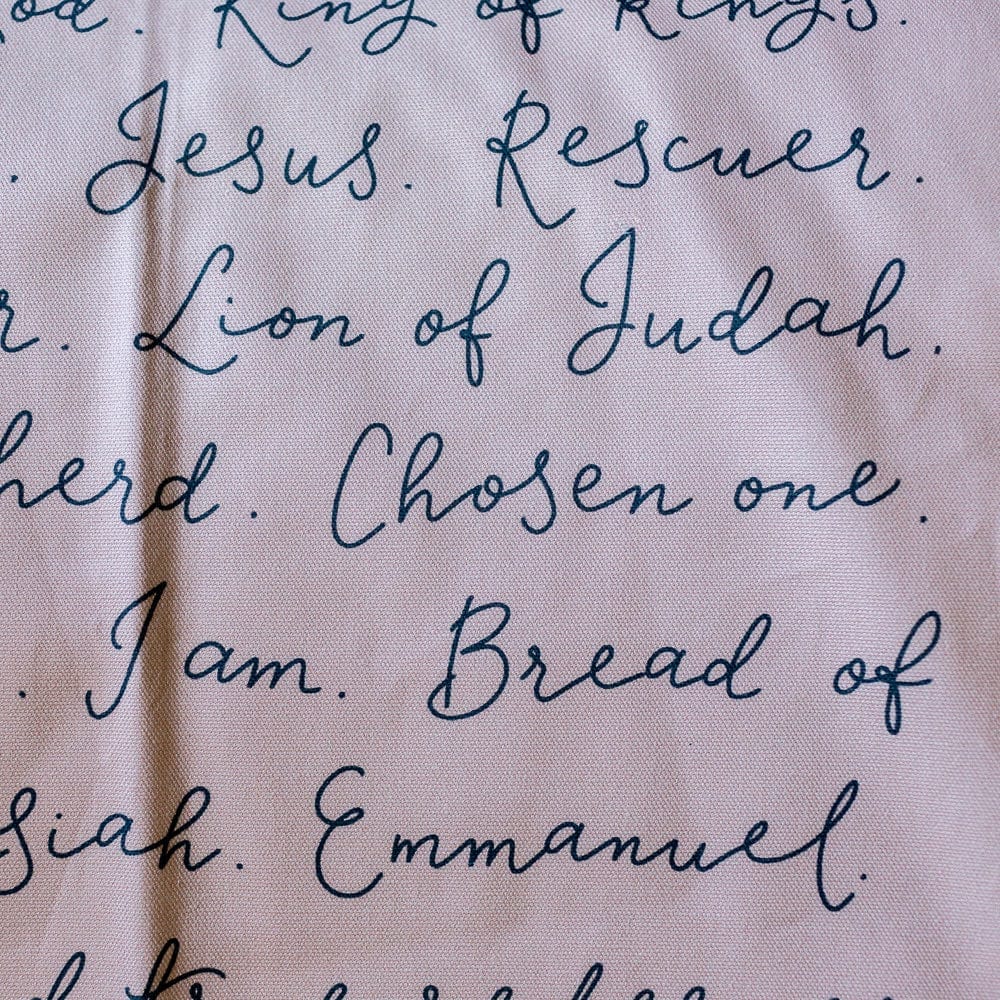 King of kings.
. Jesus. Rescuer.
. Lion of Judah.
herd. Chosen one.
. I am. Bread of
siah. Emmanuel.